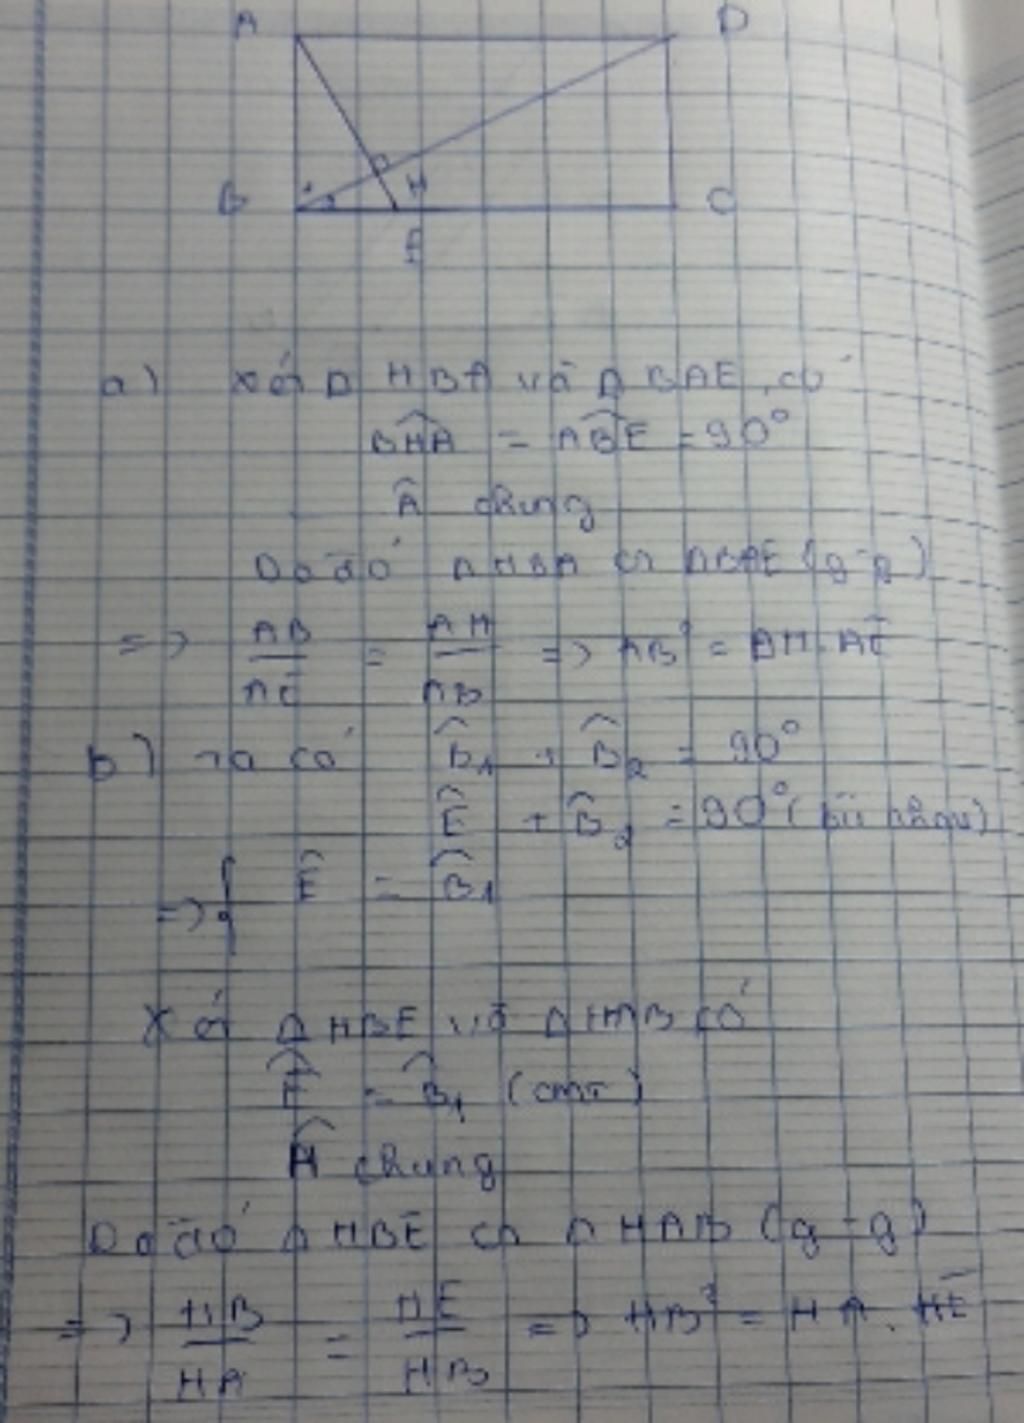 A D
B H C
E
a) Xét Δ HBA và Δ BAE có
BĤA = AB̂E = 90°
Â chung
Do đó Δ HBA ∽ Δ BAE (g-g)
=> AB/AE = AH/AB => AB² = AH.AE
b) Ta có B̂₁ + B̂₂ = 90°
Ê + B̂₂ = 90° (phụ nhau)
=> { Ê = B̂₁
Xét Δ HBE và Δ HAB có
Ê = B̂₁ (cmt)
Ĥ chung
Do đó Δ HBE ∽ Δ HAB (g-g)
=> HB/HA = HE/HB => HB² = HA.HE